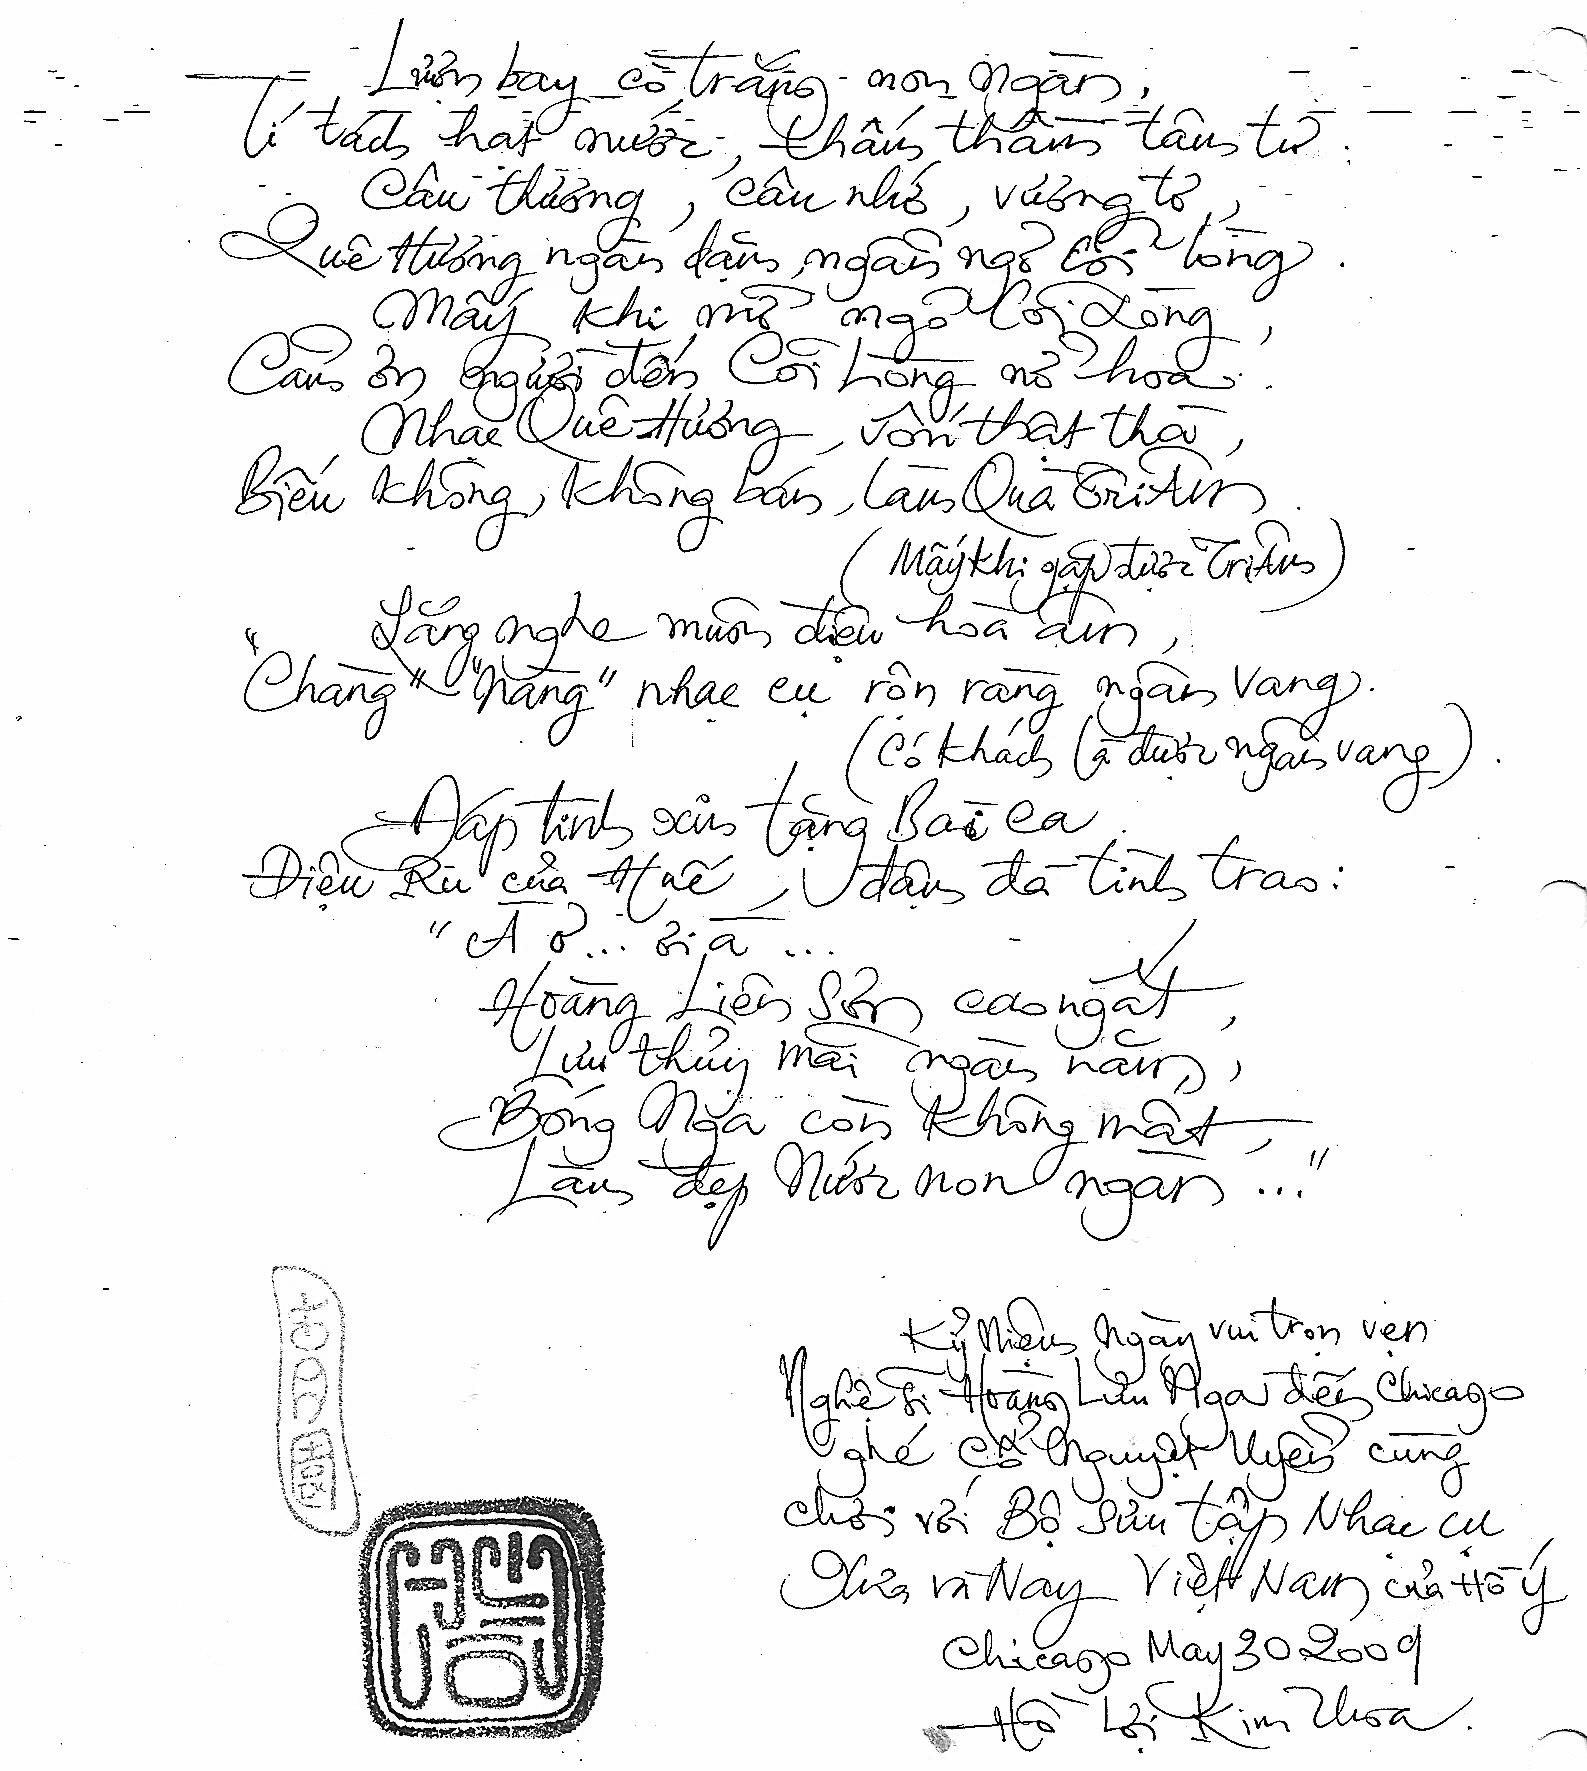 Lượn bay cò trắng non ngàn,
Tí tách hạt nước, thấm thầm tâm tư.
Câu thương, câu nhớ, vương tơ,
Quê Hương ngàn dặm, ngẩn ngơ cõi lòng.
Mấy khi mở ngỏ Cõi Lòng,
Cảm ơn người đến Cõi Lòng nở hoa.
Nhạc Quê Hương, vốn thật thà,
Biếu không, không bán, làm Quà Tri Âm.
(Mấy khi gặp được Tri Âm)
Lắng nghe muôn điệu hoà âm,
"Chàng" "Nàng" nhạc cụ rộn ràng ngân vang.
(Có khách là được ngân vang).
Đáp tình xin tặng Bài ca
Điệu Ru của Huế, đậm đà tình trao:
"À ơ... ơi à...
Hoàng Liên Sơn cao ngất,
Lưu thủy mãi ngàn năm,
Bóng Nga còn không mất,
Làm đẹp Nước non ngàn..."
古月園
Kỷ Niệm Ngày vui trọn vẹn
Nghệ sĩ Hoàng Lưu Nga đến Chicago
ghé Cổ Nguyệt Uyển cùng
chơi với Bộ Sưu tập Nhạc cụ
Xưa và Nay Việt Nam của Hồ ý
Chicago May 30 2009
Hồ Lợi Kim Thoa.